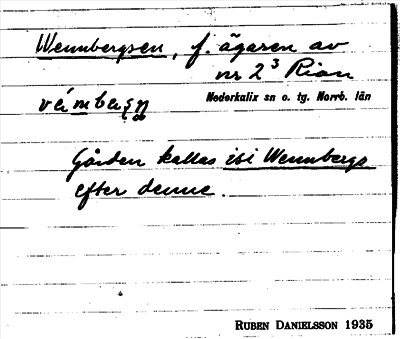 Wennbergsen, f. ägaren av
nr 2³ Rian
Nederkalix sn o. tg. Norrb. län
Gården kallas isi Wennbergs
efter denne.
RUBEN DANIELSSON 1935